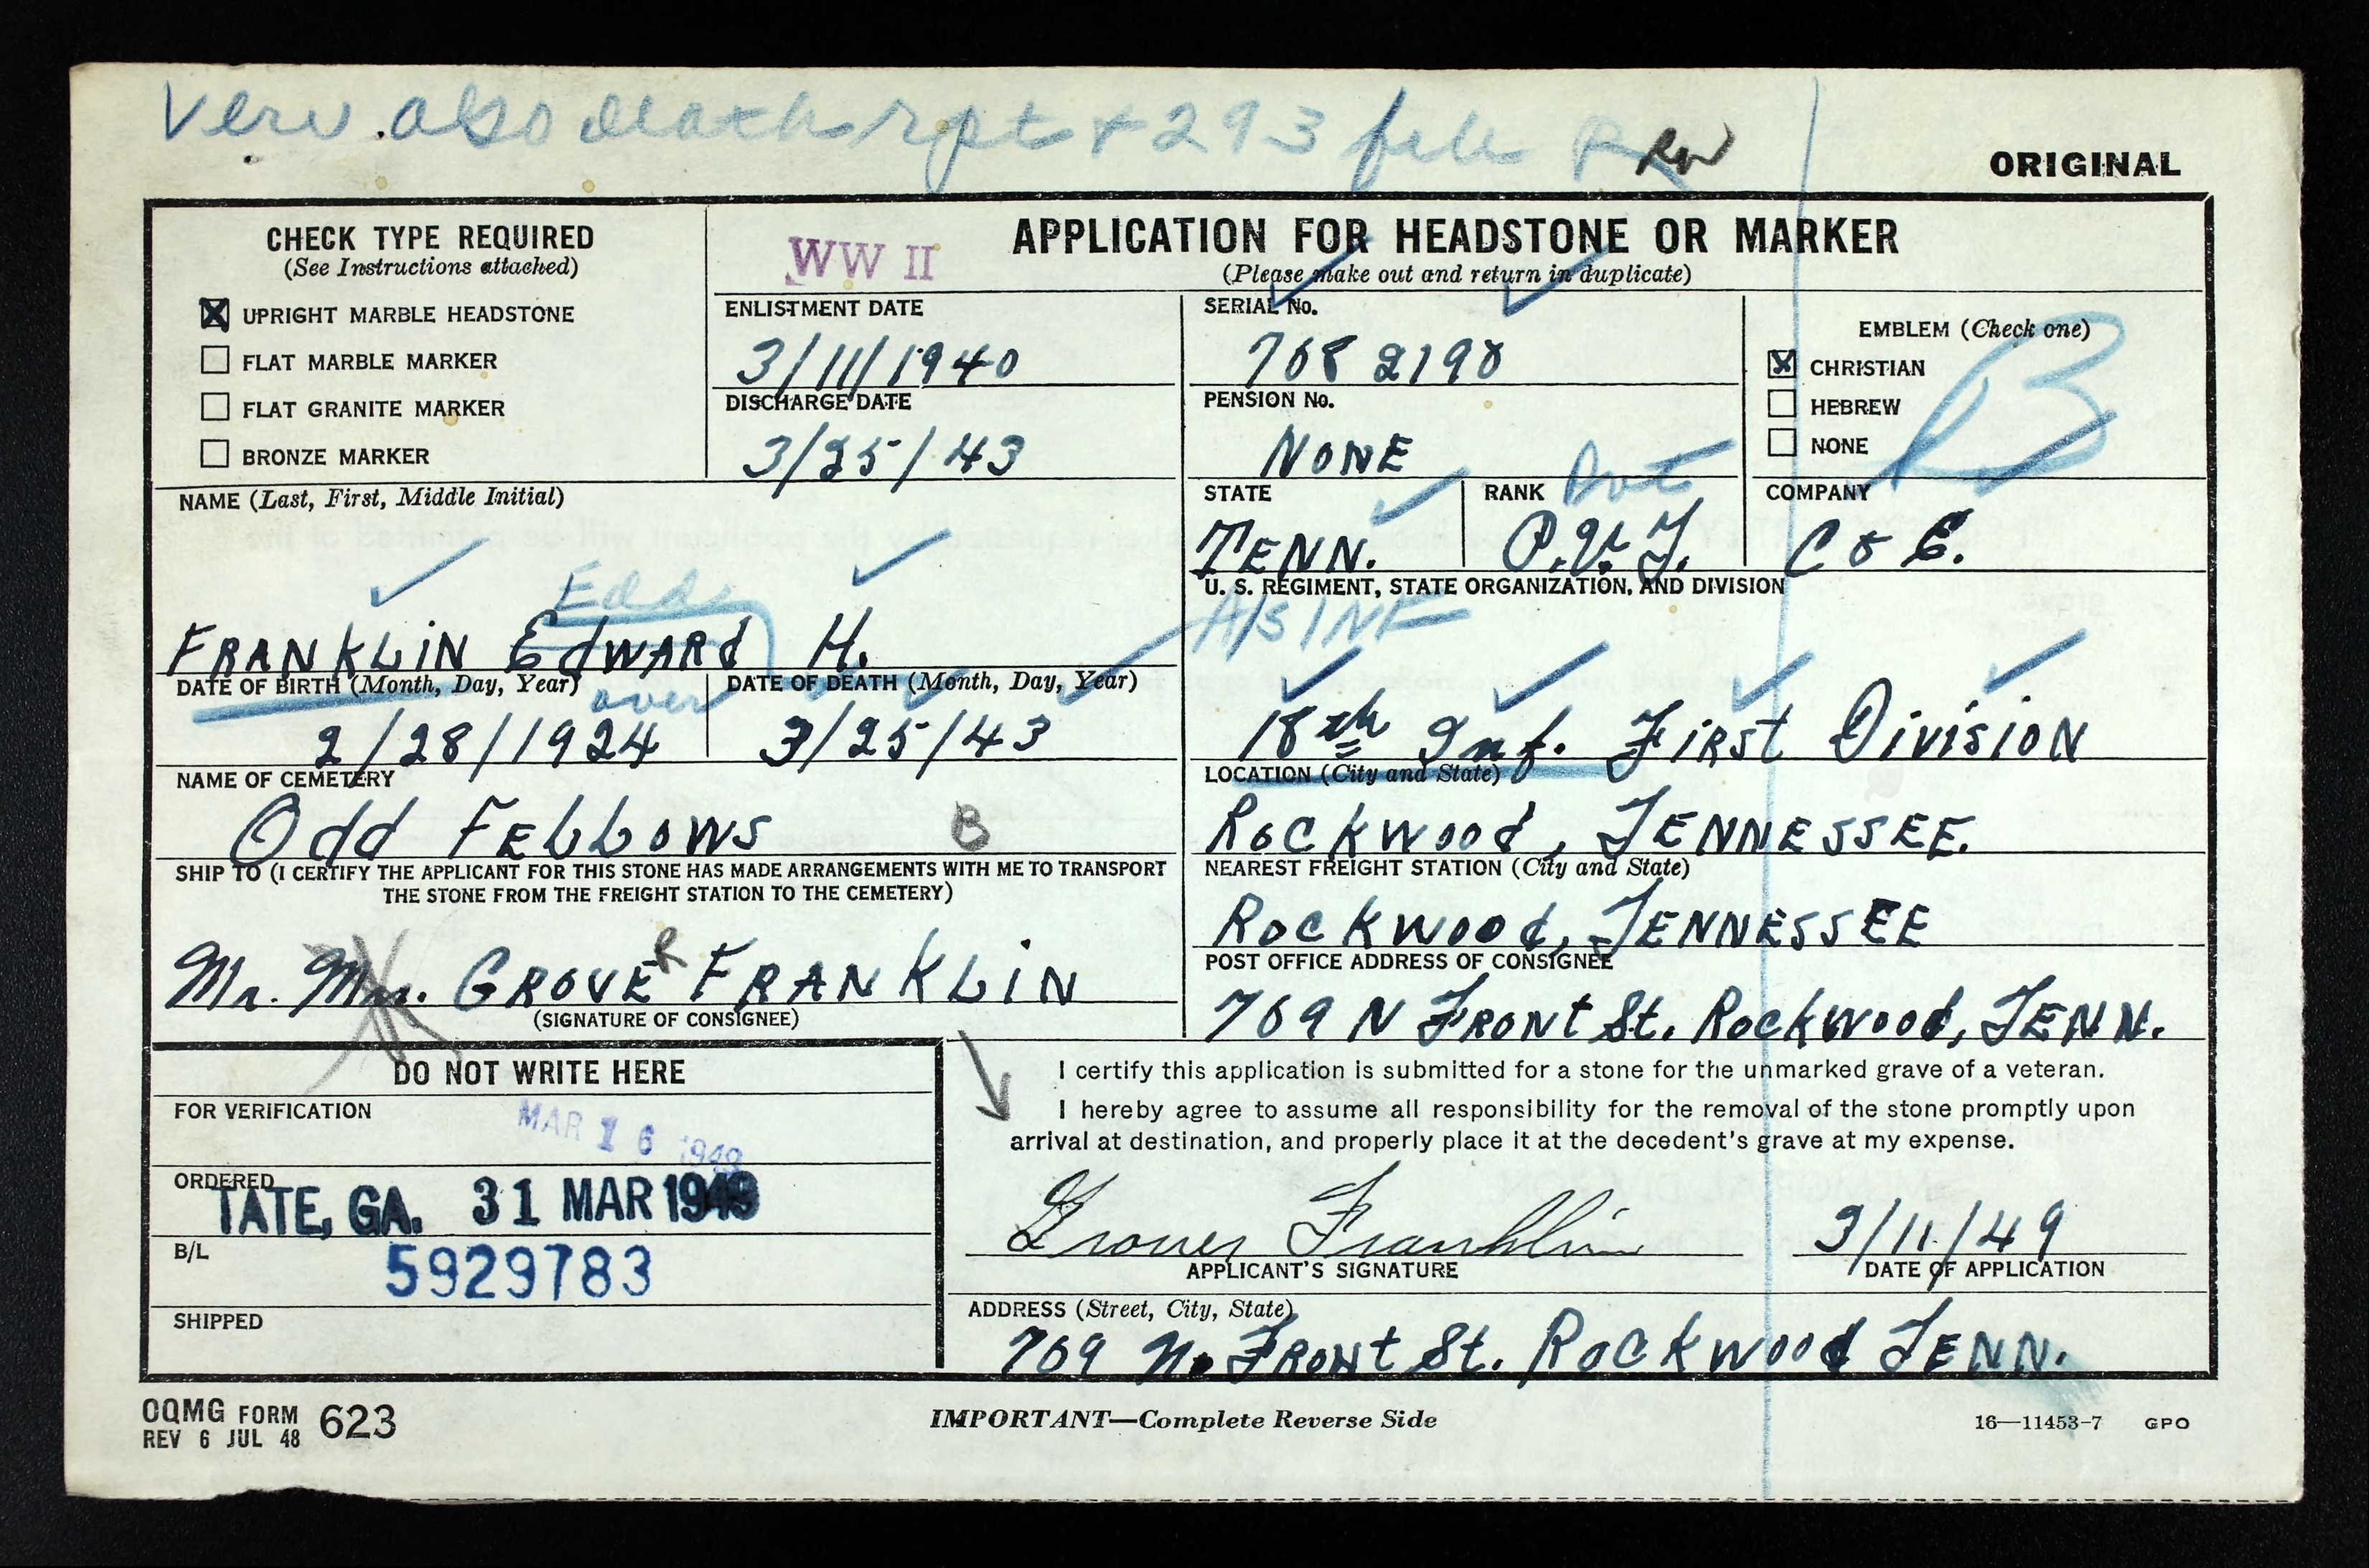 Veri also death rpt + 293 file
RW
ORIGINAL
CHECK TYPE REQUIRED
(See Instructions attached)
UPRIGHT MARBLE HEADSTONE
FLAT MARBLE MARKER
FLAT GRANITE MARKER
BRONZE MARKER
WW II
APPLICATION FOR HEADSTONE OR MARKER
(Please make out and return in duplicate)
ENLISTMENT DATE
3/11/1940
DISCHARGE DATE
3/25/43
SERIAL No.
7082190
PENSION No.
NONE
EMBLEM (Check one)
CHRISTIAN
HEBREW
NONE
B
NAME (Last, First, Middle Initial)
Edd
FRANKLIN Edward H.
STATE
TENN.
RANK Pvt
P.V.T.
COMPANY
Co E.
U. S. REGIMENT, STATE ORGANIZATION, AND DIVISION
INF
18th Inf. First Division
DATE OF BIRTH (Month, Day, Year)
over
2/28/1924
DATE OF DEATH (Month, Day, Year)
3/25/43
NAME OF CEMETERY
Odd FELLOWS B
LOCATION (City and State)
Rockwood, TENNESSEE.
SHIP TO (I CERTIFY THE APPLICANT FOR THIS STONE HAS MADE ARRANGEMENTS WITH ME TO TRANSPORT
THE STONE FROM THE FREIGHT STATION TO THE CEMETERY)
Mr. GROVER FRANKLIN
(SIGNATURE OF CONSIGNEE)
NEAREST FREIGHT STATION (City and State)
Rockwood, TENNESSEE
POST OFFICE ADDRESS OF CONSIGNEE
709 N FRONT St. Rockwood, TENN.
DO NOT WRITE HERE
FOR VERIFICATION
MAR 16 1949
ORDERED
TATE, GA. 31 MAR 1949
B/L
5929783
SHIPPED
I certify this application is submitted for a stone for the unmarked grave of a veteran.
I hereby agree to assume all responsibility for the removal of the stone promptly upon
arrival at destination, and properly place it at the decedent's grave at my expense.
Grover Franklin
APPLICANT'S SIGNATURE
3/11/49
DATE OF APPLICATION
ADDRESS (Street, City, State)
709 N. FRONT St. Rockwood TENN.
OQMG FORM 623
REV 6 JUL 48
IMPORTANT—Complete Reverse Side
16—11453-7 GPO